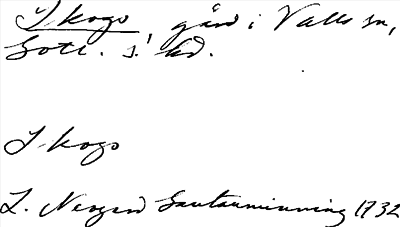 Skogs, gård i Valls sn,
Gotl. s. hd.
Skogs
L. Nergård Gautauminning 1732